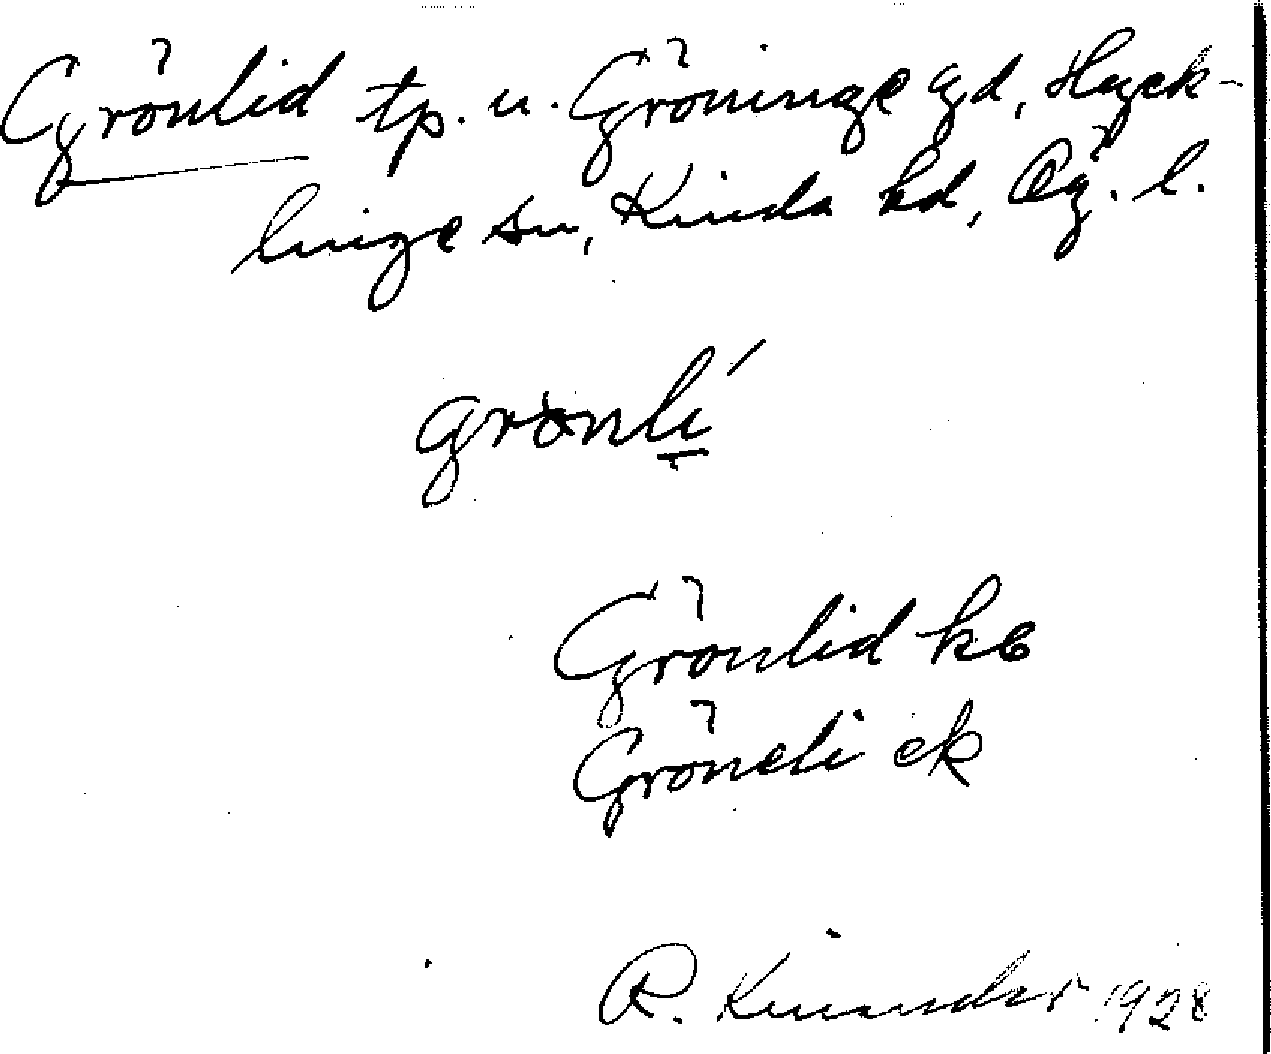 Grönlid tp. u. Gröninge gd, Hyck-
linge sn, Kinda hd, Ög. l.
Grönlid kb
Gröneli ek
R. Kinander 1928